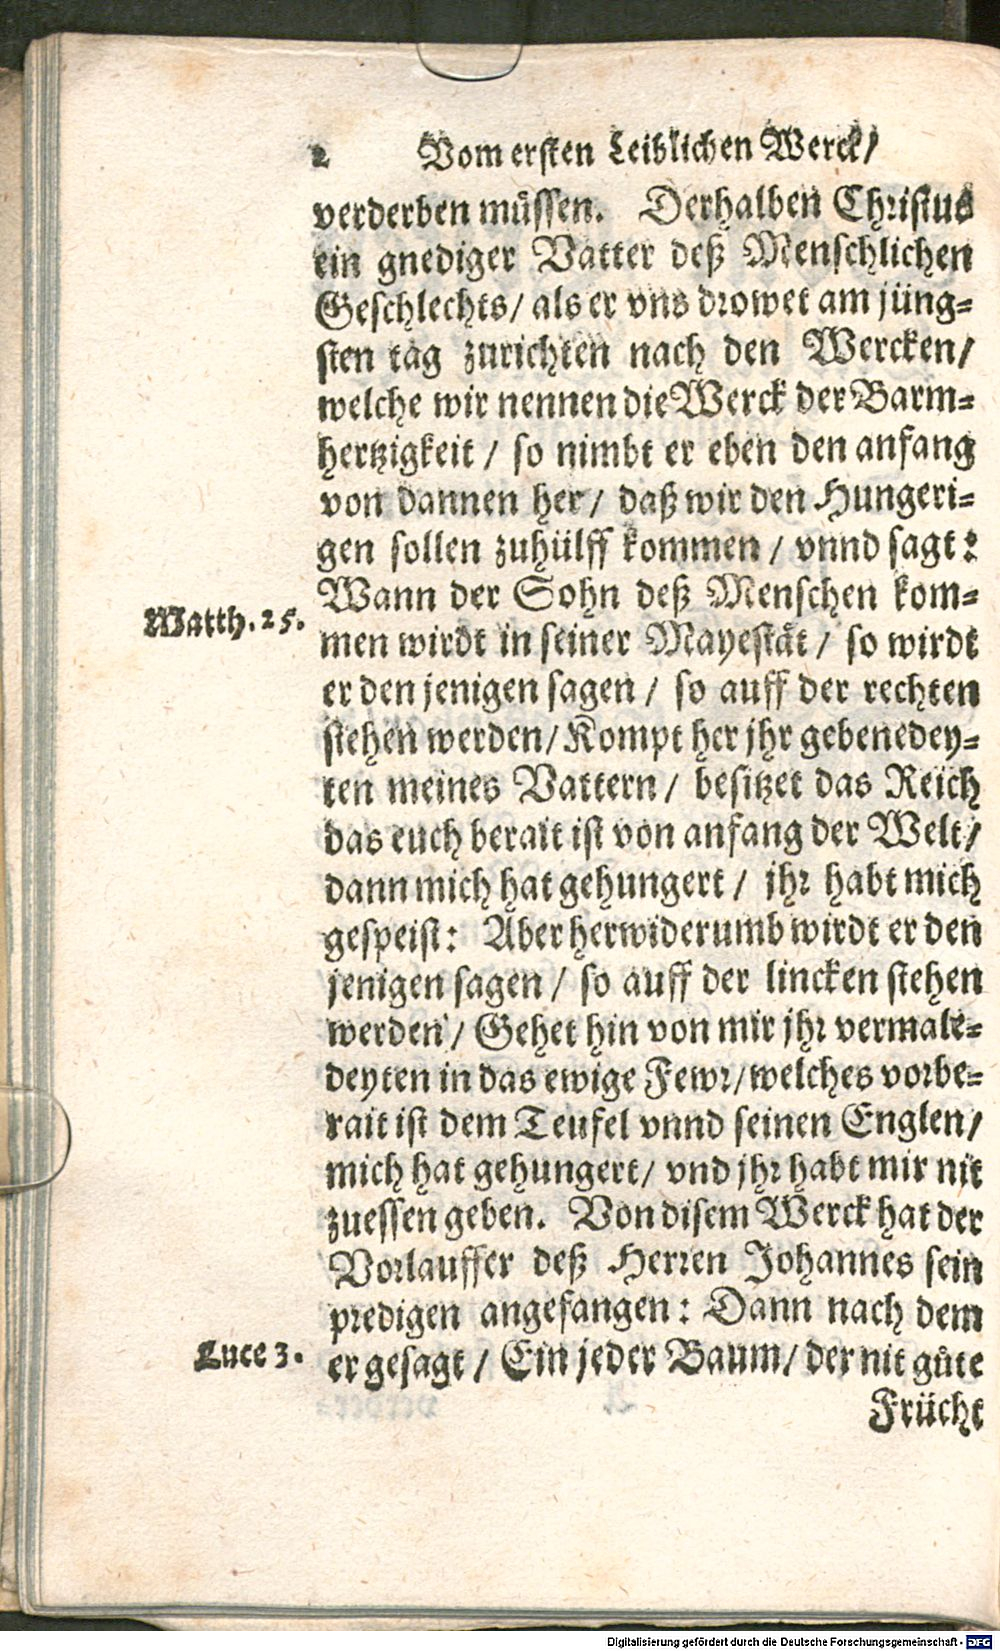 2 Vom ersten Leiblichen Werck/
verderben müssen. Derhalben Christus
ein gnediger Vatter deß Menschlichen
Geschlechts/ als er vns drowet am jüng-
sten tag zurichten nach den Wercken/
welche wir nennen die Werck der Barm-
hertzigkeit / so nimbt er eben den anfang
von dannen her/ daß wir den Hungeri-
gen sollen zuhülff kommen / vnnd sagt:
Wann der Sohn deß Menschen kom-
Matth. 25.
men wirdt in seiner Mayestät / so wirdt
er den jenigen sagen / so auff der rechten
stehen werden/ Kompt her jhr gebenedey-
ten meines Vattern / besitzet das Reich
das euch berait ist von anfang der Welt/
dann mich hat gehungert / jhr habt mich
gespeist: Aber herwiderumb wirdt er den
jenigen sagen / so auff der lincken stehen
werden / Gehet hin von mir jhr vermale-
deyten in das ewige Fewr/ welches vorbe-
rait ist dem Teufel vnnd seinen Englen/
mich hat gehungert/ vnd jhr habt mir nit
zuessen geben. Von disem Werck hat der
Vorlauffer deß Herren Johannes sein
predigen angefangen: Dann nach dem
Luce 3.
er gesagt / Ein jeder Baum/ der nit gůte
Frücht
Digitalisierung gefördert durch die Deutsche Forschungsgemeinschaft - DFG